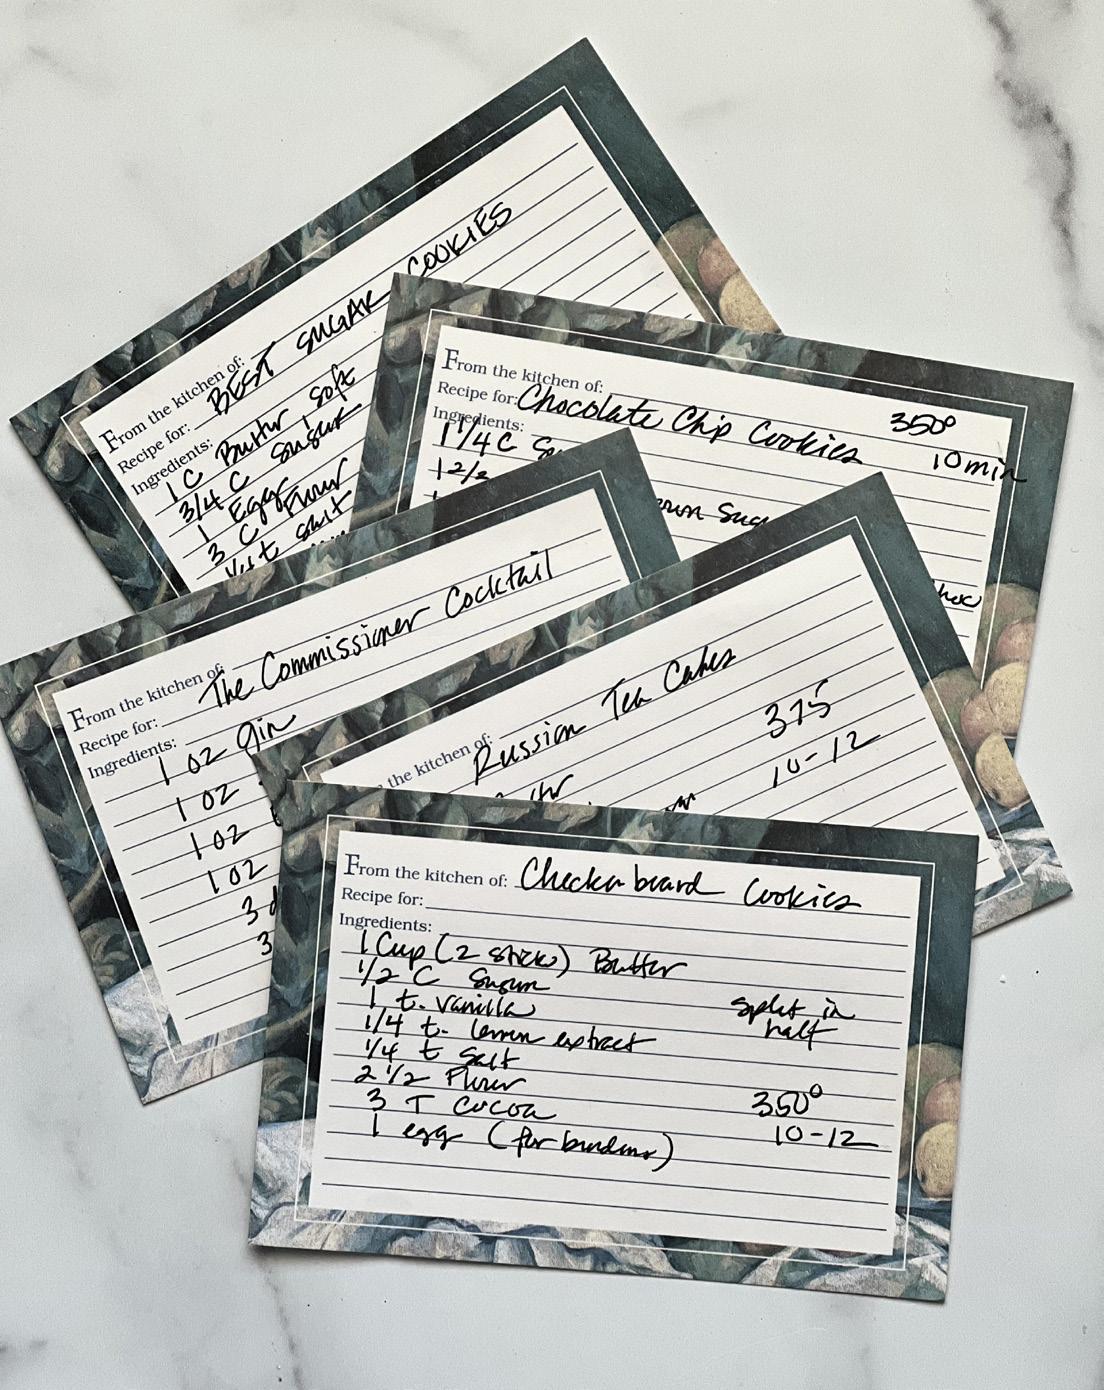 From the kitchen of:
BEST SUGAR COOKIES
Recipe for:
Ingredients:
1 C Butter soft
3/4 C Sugar
1 Egg
3 C Flour
salt
From the kitchen of:
Recipe for: Chocolate Chip Cookies 350°
Ingredients: 10 min
1 1/4 C
1 2/2
own Sug
hoc
From the kitchen of:
The Commissioner Cocktail
Recipe for:
Ingredients:
1 oz Gin
1 oz
1 oz
1 oz
3 d
3
the kitchen of:
Russian Tea Cakes
375
10-12
From the kitchen of: Checkerboard Cookies
Recipe for:
Ingredients:
1 Cup (2 sticks) Butter
1/2 C Sugar
1 t. vanilla split in
1/4 t. lemon extract half
1/4 t salt
2 1/2 Flour
3 T Cocoa 350°
1 egg (for binding) 10-12